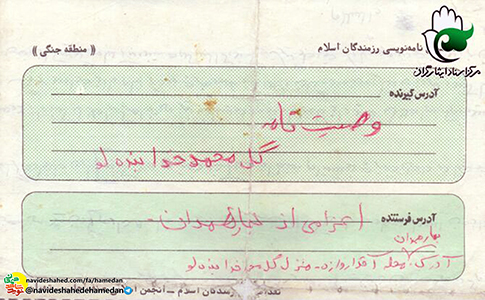 نامه‌نویسی رزمندگان اسلام
« منطقه جنگی »
مرکز اسناد ایثارگران
آدرس گیرنده
وصیت نامه
گل محمد خدا بنده لو
آدرس فرستنده
اعزامی از بهار همدان
بهار همدان
آدرس محله آقا دروازه - منزل گل محمد خدا بنده لو
رزمندگان اسلام - انجمن
navideshahed.com/fa/hamedan
@navideshahedehamedan